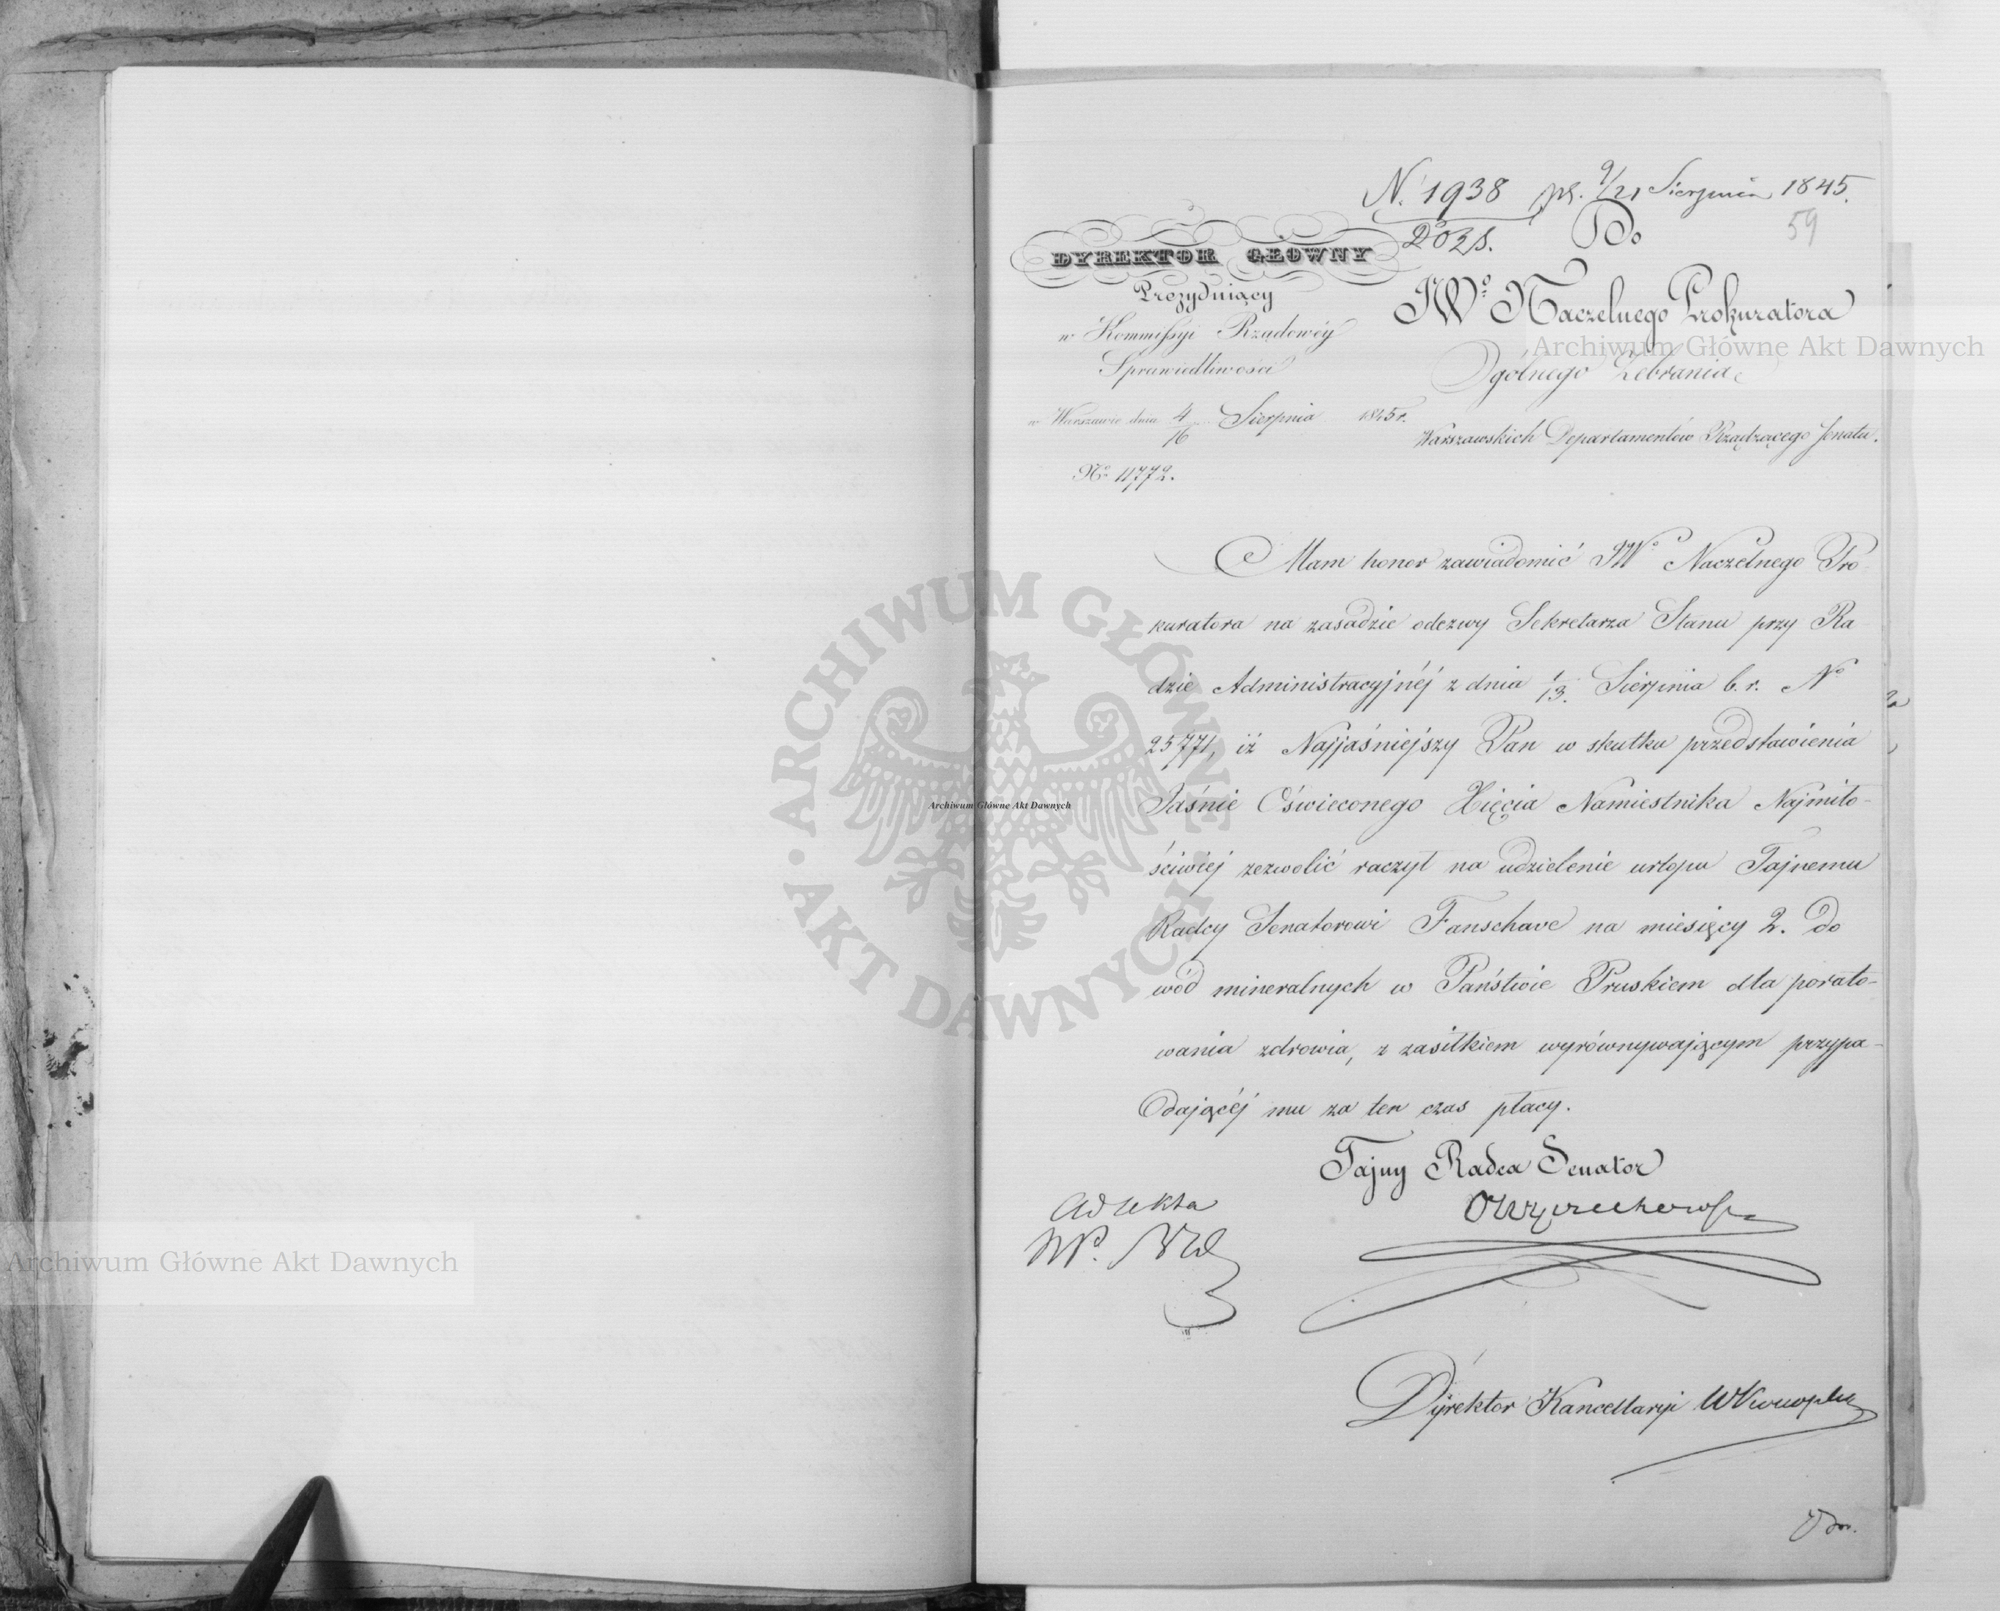 N. 1938 pr. 9/21 Sierpnia 1845.
59
DYREKTOR GŁOWNY
Prezyduiący
w Kommissyi Rządowéy
Sprawiedliwości
w Warszawie dnia 4/16 Sierpnia 1845 r.
No 11772.
Do
JWo Naczelnego Prokuratora
Ogólnego Zebrania
Warszawskich Departamentów Rządzącego Senatu.
Mam honor zawiadomić JWo Naczelnego Pro-
kuratora na zasadzie odezwy Sekretarza Stanu przy Ra
dzie Administracyjnéj z dnia 1/13. Sierpnia b. r. No
25771, iż Najjaśniejszy Pan w skutku przedstawienia
Jaśnie Oświeconego Xięcia Namiestnika Najmiło-
ściwiej zezwolić raczył na udzielenie urlopu Tajnemu
Radcy Senatorowi Fanschave na miesięcy 2. do
wód mineralnych w Państwie Pruskiem dla porato-
wania zdrowia, z zasiłkiem wyrównywającym przypa-
dającéj mu za ten czas płacy.
Tajny Radca Senator
Ad Akta
Dyrektor Kancellaryi
Archiwum Główne Akt Dawnych
Archiwum Główne Akt Dawnych
Archiwum Główne Akt Dawnych
ARCHIWUM GŁÓWNE · AKT DAWNYCH ·